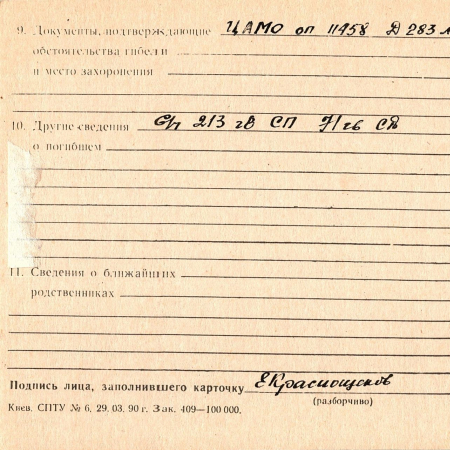 9. Документы, подтверждающие ЦАМО оп 11458 Д 283 л
обстоятельства гибели
и место захоронения
10. Другие сведения 213 гв СП 71 гв СД
о погибшем
11. Сведения о ближайших
родственниках
Подпись лица, заполнившего карточку ЕКраснощеков
(разборчиво)
Киев. СПТУ № 6. 29. 03. 90 г. Зак. 409—100 000.